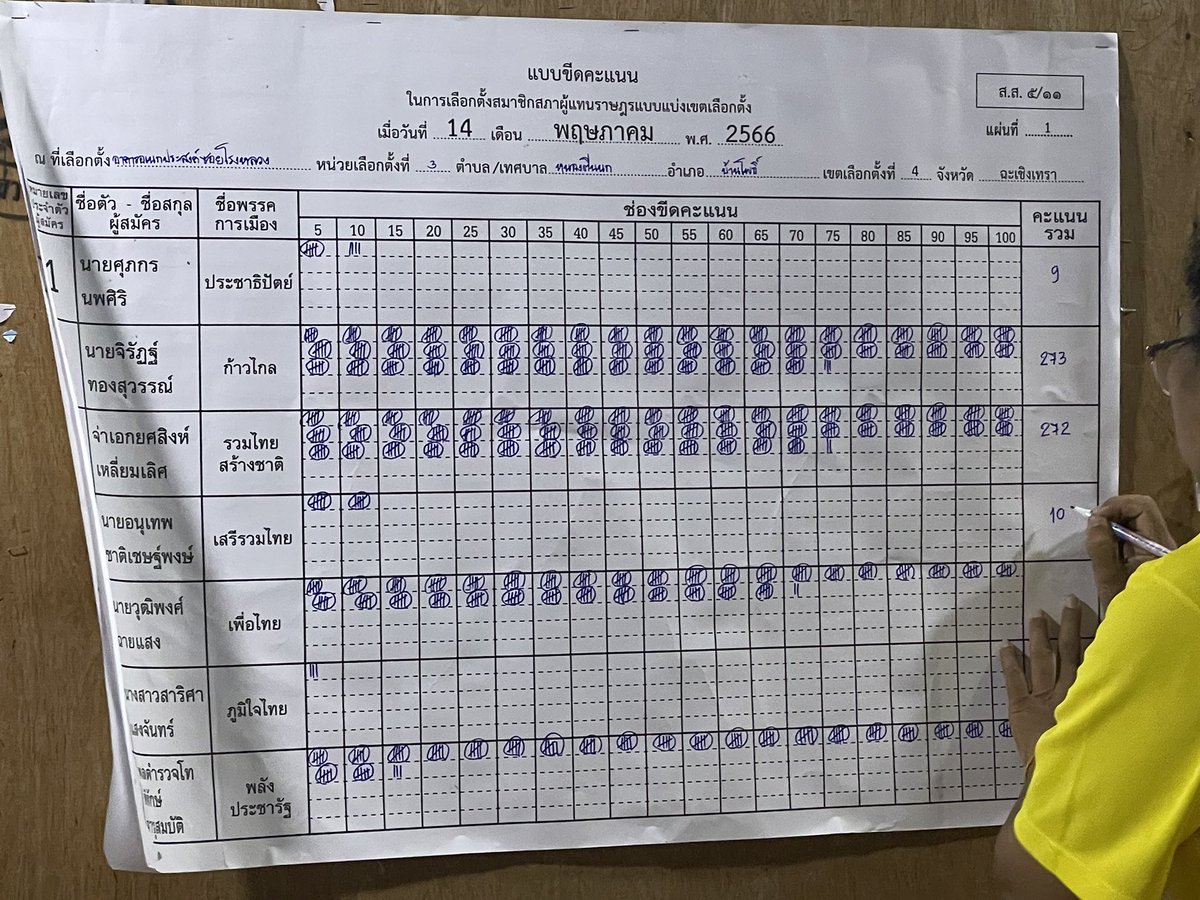 แบบขีดคะแนน
ส.ส. ๕/๑๑
ในการเลือกตั้งสมาชิกสภาผู้แทนราษฎรแบบแบ่งเขตเลือกตั้ง
เมื่อวันที่ 14 เดือน พฤษภาคม พ.ศ. 2566
แผ่นที่ 1
ณ ที่เลือกตั้ง อาคารอเนกประสงค์ซอยโรงหลวง หน่วยเลือกตั้งที่ 3 ตำบล/เทศบาล อำเภอ บ้านโพธิ์ เขตเลือกตั้งที่ 4 จังหวัด ฉะเชิงเทรา
หมายเลขประจำตัวผู้สมัคร ชื่อตัว - ชื่อสกุล ผู้สมัคร ชื่อพรรคการเมือง ช่องขีดคะแนน คะแนนรวม
5 10 15 20 25 30 35 40 45 50 55 60 65 70 75 80 85 90 95 100
1 นายศุภกร นพศิริ ประชาธิปัตย์ 9
นายจิรัฏฐ์ ทองสุวรรณ์ ก้าวไกล 273
จ่าเอกยศสิงห์ เหลี่ยมเลิศ รวมไทยสร้างชาติ 272
นายอนุเทพ ชาติเชษฐ์พงษ์ เสรีรวมไทย 10
นายวุฒิพงศ์ ฉายแสง เพื่อไทย
นางสาวสาริศา แสงจันทร์ ภูมิใจไทย
พลตำรวจโท พิทักษ์ จารุสมบัติ พลังประชารัฐ